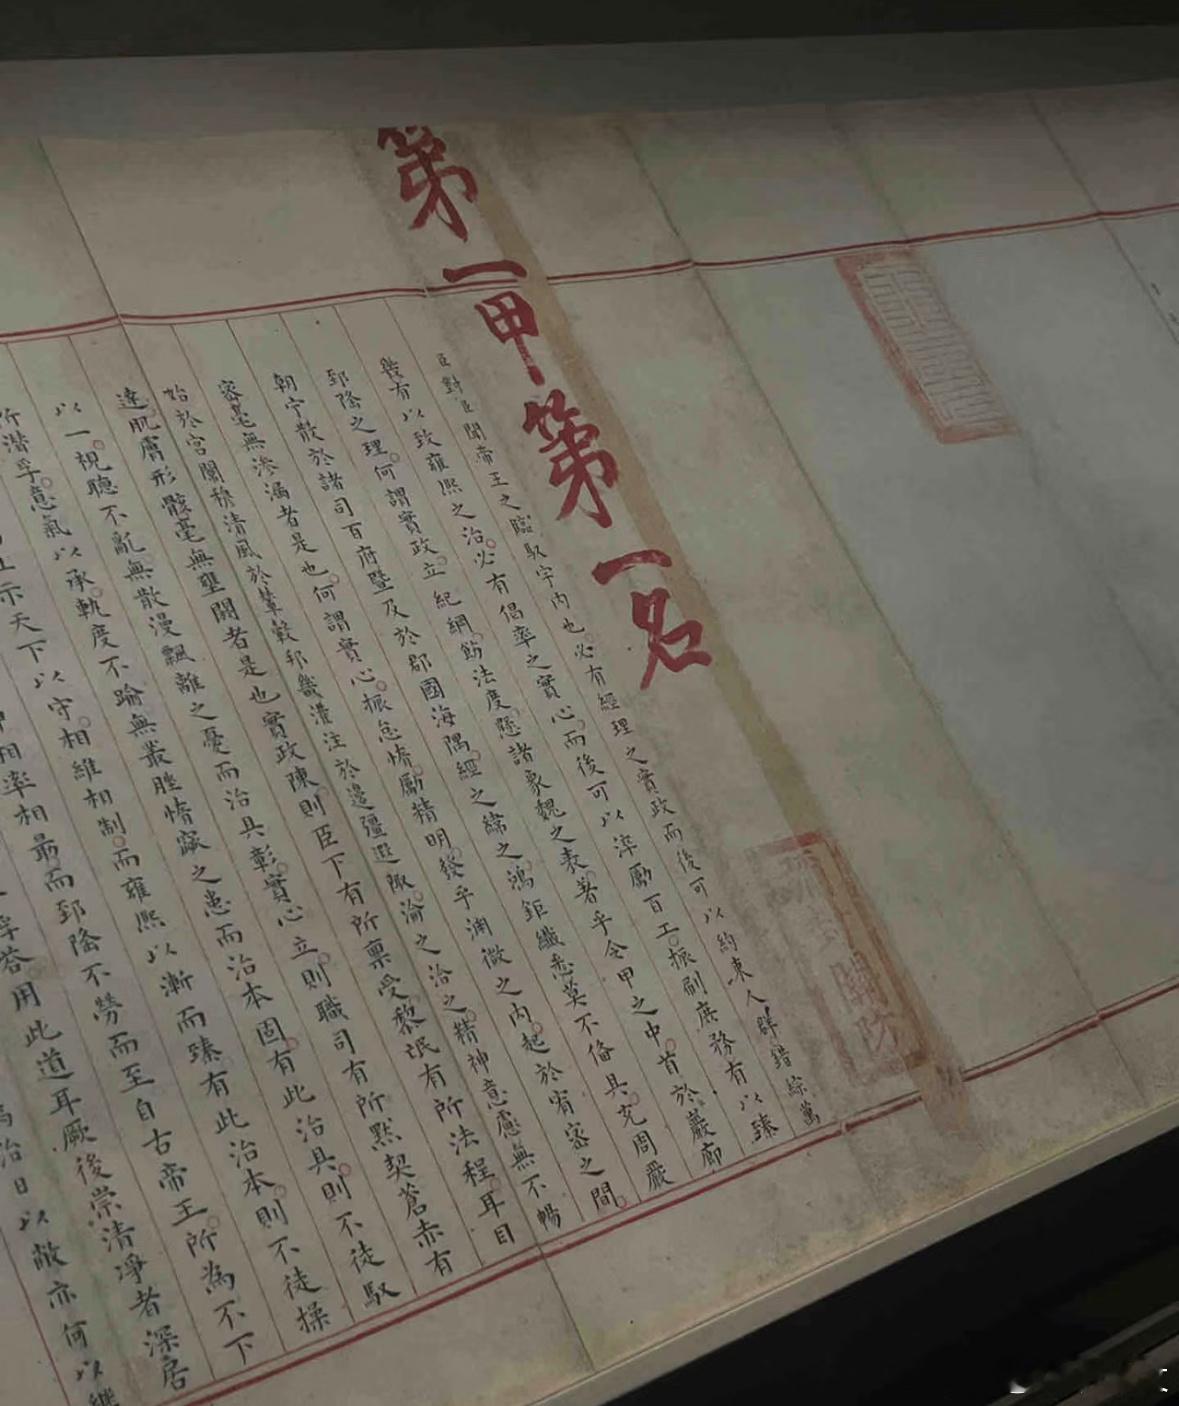 第一甲第一名
臣對臣聞帝王之臨馭宇內也必有經理之實政而後可以約束人群錯綜萬
幾有以致雍熙之治必有倡率之實心而後可以淬勵百工振刷庶務有以臻
郅隆之理何謂實政立紀綱飭法度懸諸象魏之表著乎令甲之中首於巖廊
朝宁散於諸司百府暨及於郡國海隅經之緯之鴻鉅纖悉莫不備具充周嚴
密毫無滲漏者是也何謂實心振怠惰勵精明發乎淵微之內起於宥密之間
始於宮闈穆清風於輦轂邦畿灌注於邊疆遐陬淪之洽之精神意慮無不暢
達肌膚形骸毫無壅閼者是也實政陳則臣下有所稟受黎氓有所法程耳目
以一視聽不亂無散漫飄離之憂而治具彰實心立則職司有所默契蒼赤有
所潛孚意氣以承軌度不踰無叢脞惰窳之患而治本固有此治具則不徒馭
示天下以守相維相制而雍熙以漸而臻有此治本則不徒操
相率相最而郅隆不勞而至自古帝王所為不下
孚答用此道耳厥後崇清淨者深居
治日以敝亦何以繼
關防